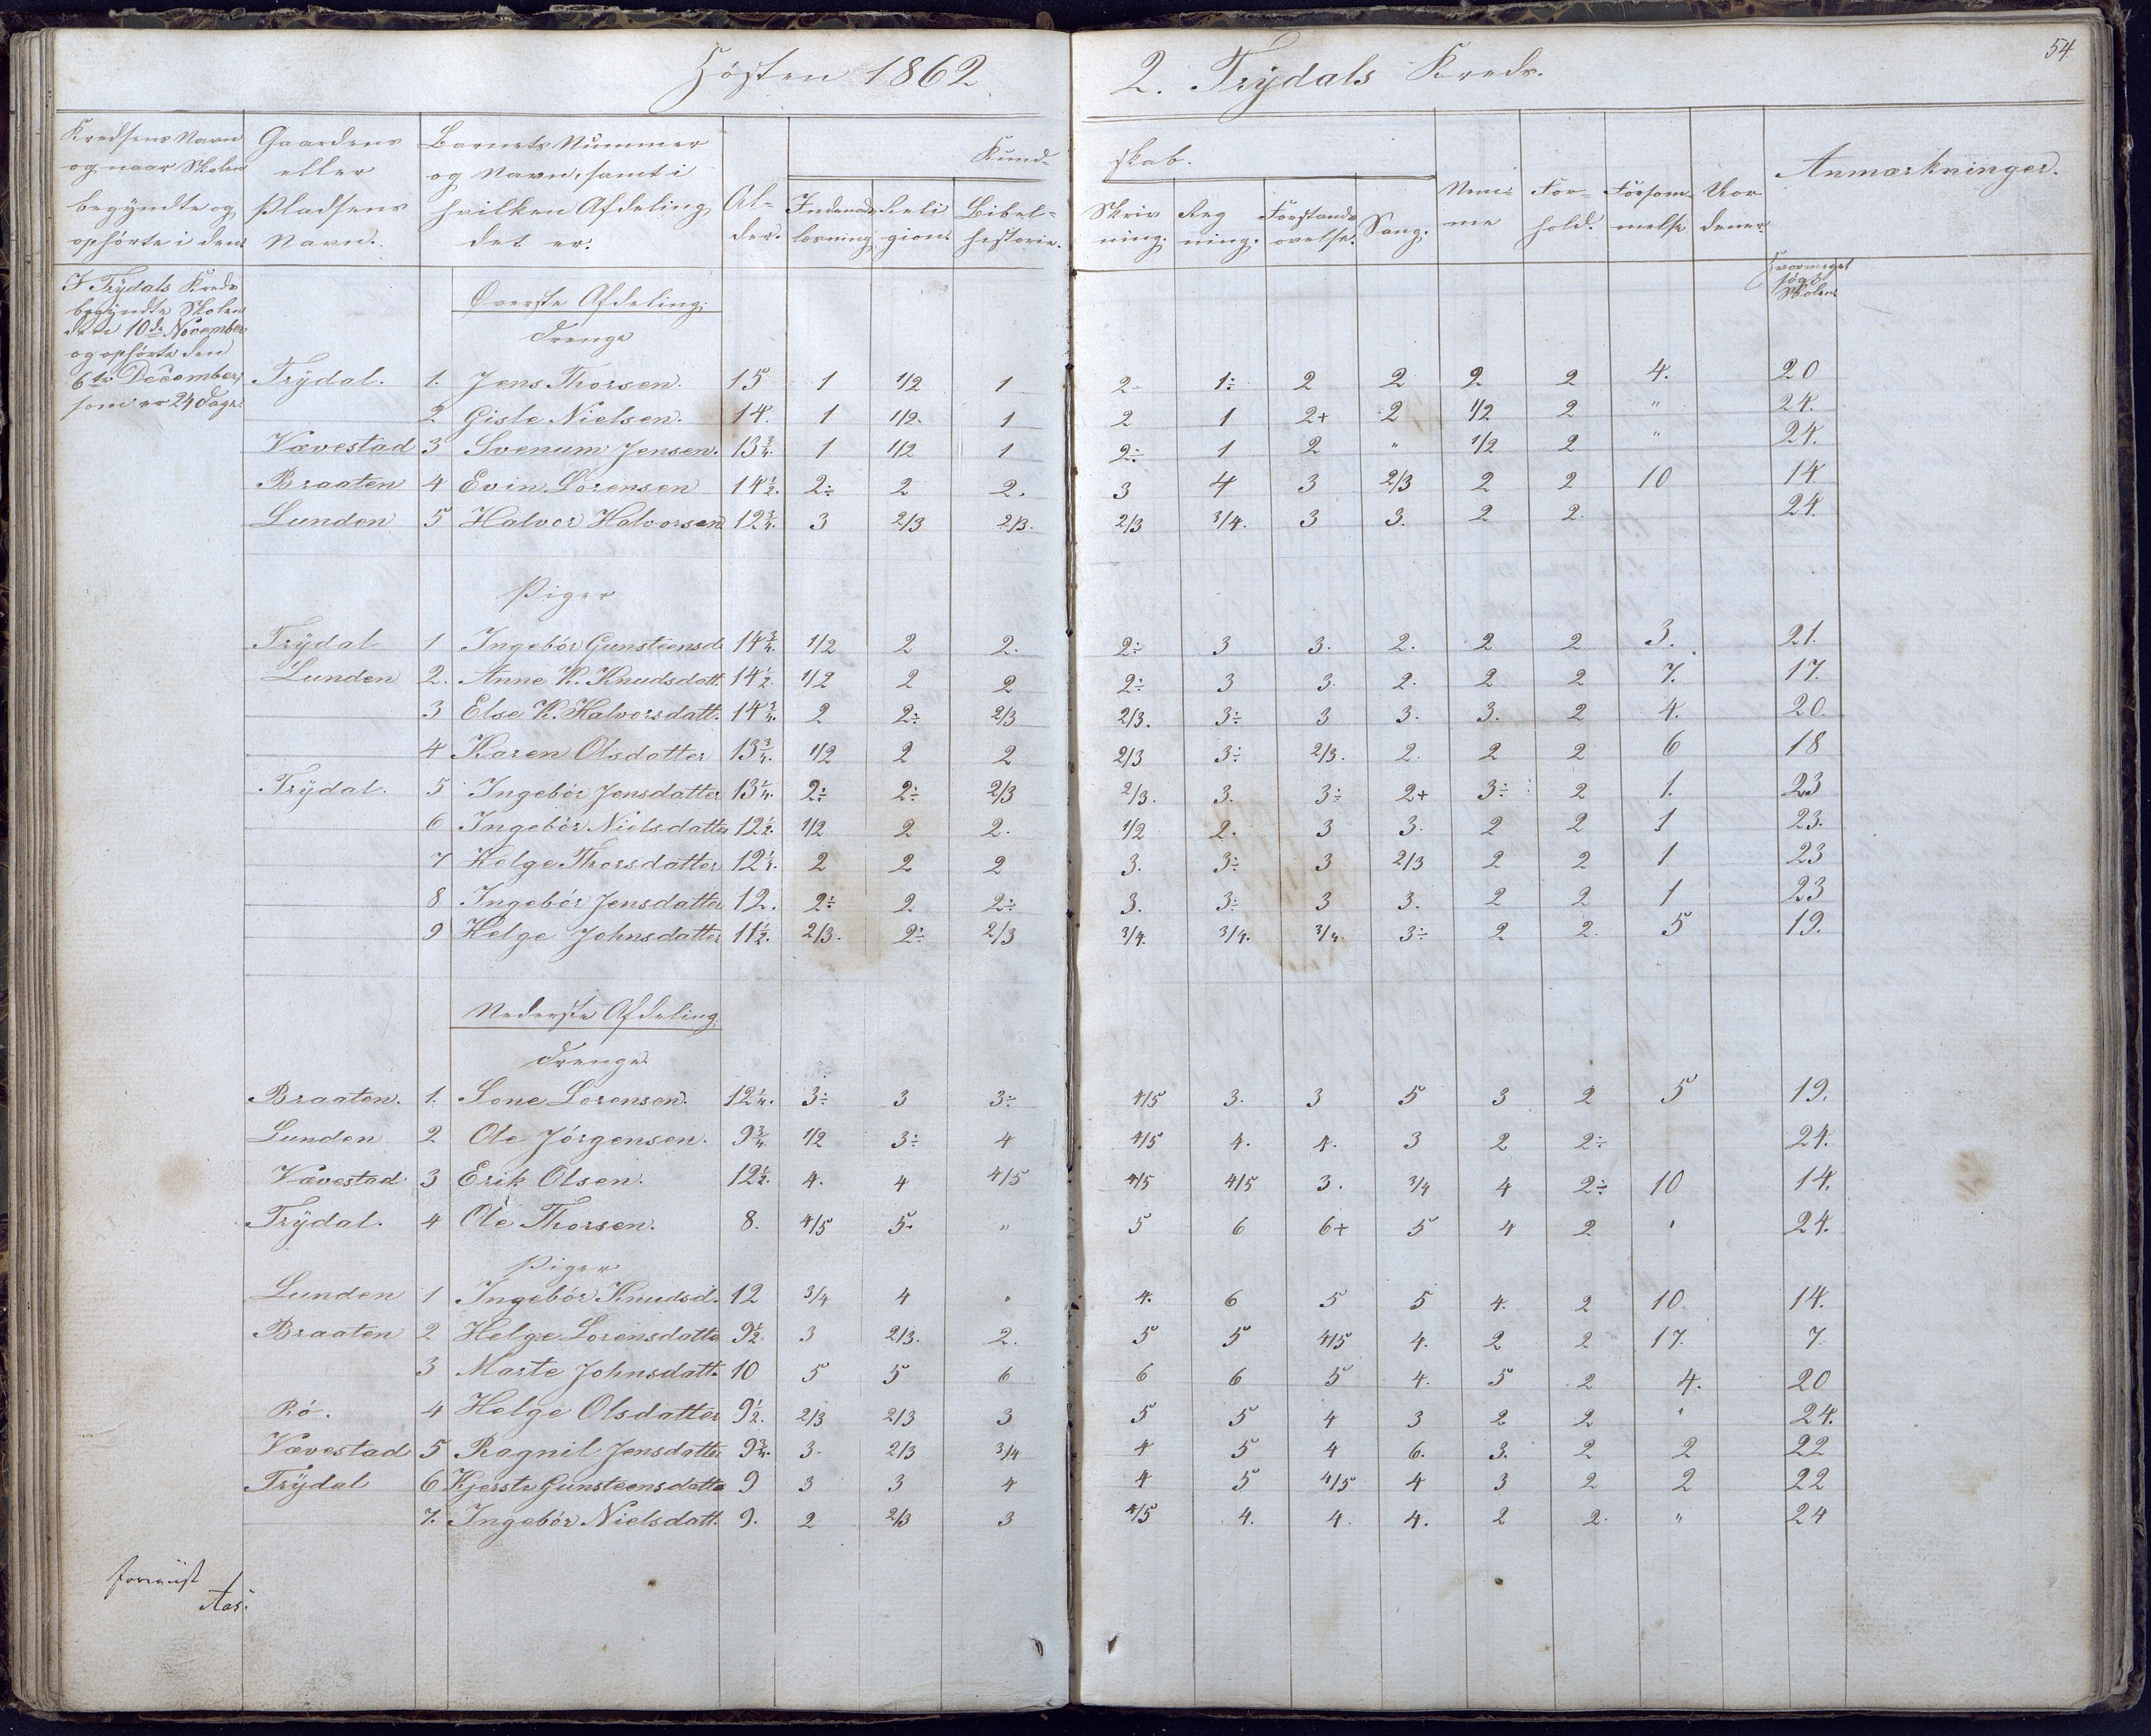 Hösten 1862
2. Trydals Kreds.
54
Kredsens Navn og naar Skolen begyndte og ophörte i den.
Gaardens eller Pladsens Navn.
Barnets Nummer og Navn, samt i hvilken Afdeling det er.
Al- der.
Kund- skab.
Indenadslæsning.
Religion.
Bibelhistorie.
Skrivning.
Regning.
Forstandsøvelse.
Sang.
Nemme
Forhold.
Forsömmelse
Anmærkninger.
I Trydals Kreds
begyndte Skolen
den 10de November
og ophörte den
6te December,
som er 24 Dage.
Hvormeget søgt Skolen
Øverste Afdeling.
Drenge
Trydal. 1. Jens Thorsen. 15 1 1/2 1 2 1÷ 2 2 2 2 4. 20
2 Gisle Nielsen. 14. 1 1/2. 1 2 1 2+ 2 1/2 2 " 24.
Vævestad 3 Svenum Jensen. 13 3/4. 1 1/2 1 2÷ 1 2 " 1/2 2 " 24.
Braaten 4 Evin Lorensen 14 1/2. 2÷ 2 2. 3 4 3 2/3 2 2 10 14
Lunden 5 Halvor Halvorsen 12 3/4. 3 2/3 2/3. 2/3 3/4. 3 3. 2 2. 24
Piger
Trydal 1 Ingebör Gunsteensd. 14 3/4. 1/2 2 2. 2÷ 3 3. 2. 2 2 3. 21.
Lunden 2. Anne K. Knudsdatt. 14 1/2. 1/2 2 2 2÷ 3 3. 2. 2 2 7. 17.
3 Else K. Halvorsdatt. 14 3/4. 2 2÷ 2/3 2/3. 3÷ 3 3. 3. 2 4. 20.
4 Karen Olsdatter 13 3/4. 1/2 2 2 2/3 3÷ 2/3. 2. 2 2 6 18
Trydal. 5 Ingebör Jensdatter 13 1/4. 2÷ 2÷ 2/3 2/3. 3. 3÷ 2+ 3÷ 2 1. 23
6 Ingebör Nielsdatter 12 1/2. 1/2 2 2. 1/2 2. 3 3. 2 2 1 23.
7 Helge Thorsdatter 12 1/4. 2 2 2 3. 3÷ 3 2/3 2 2 1 23
8 Ingebör Jensdatter 12. 2÷ 2 2÷ 3. 3÷ 3 3. 2 2 1 23
9 Helge Johnsdatter 11 1/2. 2/3. 2÷ 2/3 3/4. 3/4. 3/4. 3÷ 2 2. 5 19.
Nederste Afdeling.
Drenge
Braaten. 1. Lone Lorensen. 12 1/4. 3÷ 3 3÷ 4/5 3. 3 5 3 2 5 19.
Lunden 2 Ole Jörgensen. 9 3/4. 1/2 3÷ 4 4/5 4. 4. 3 2 2÷ 24.
Vævestad 3 Erik Olsen. 12 1/2. 4. 4 4/5 4/5 4/5 3. 3/4 4 2÷ 10 14.
Trydal. 4 Ole Thorsen. 8. 4/5 5. " 5 6 6+ 5 4 2 ' 24.
Piger
Lunden 1 Ingebör Knudsd. 12 3/4 4 " 4. 6 5 5 4. 2 10. 14.
Braaten 2 Helge Lorensdatter 9 1/2. 3 2/3. 2. 5 5 4/5 4. 2 2 17. 7.
3 Marte Johnsdatt. 10 5 5 6 6 6 5 4. 5 2 4. 20
Rö. 4 Helge Olsdatter 9 1/2. 2/3 2/3 3 5 5 4 3 2 2 ' 24.
Vævestad 5 Ragnil Jensdatter 9 3/4. 3. 2/3 3/4 4 5 4 6. 3. 2 2 22
Trydal 6 Kjerste Gunsteensdatter 9 3 3 4 4 5 4/5 4 3 2 2 22
7. Ingebör Nielsdatt. 9. 2 2/3 3 4/5 4. 4. 4. 2 2. " 24
Aas.